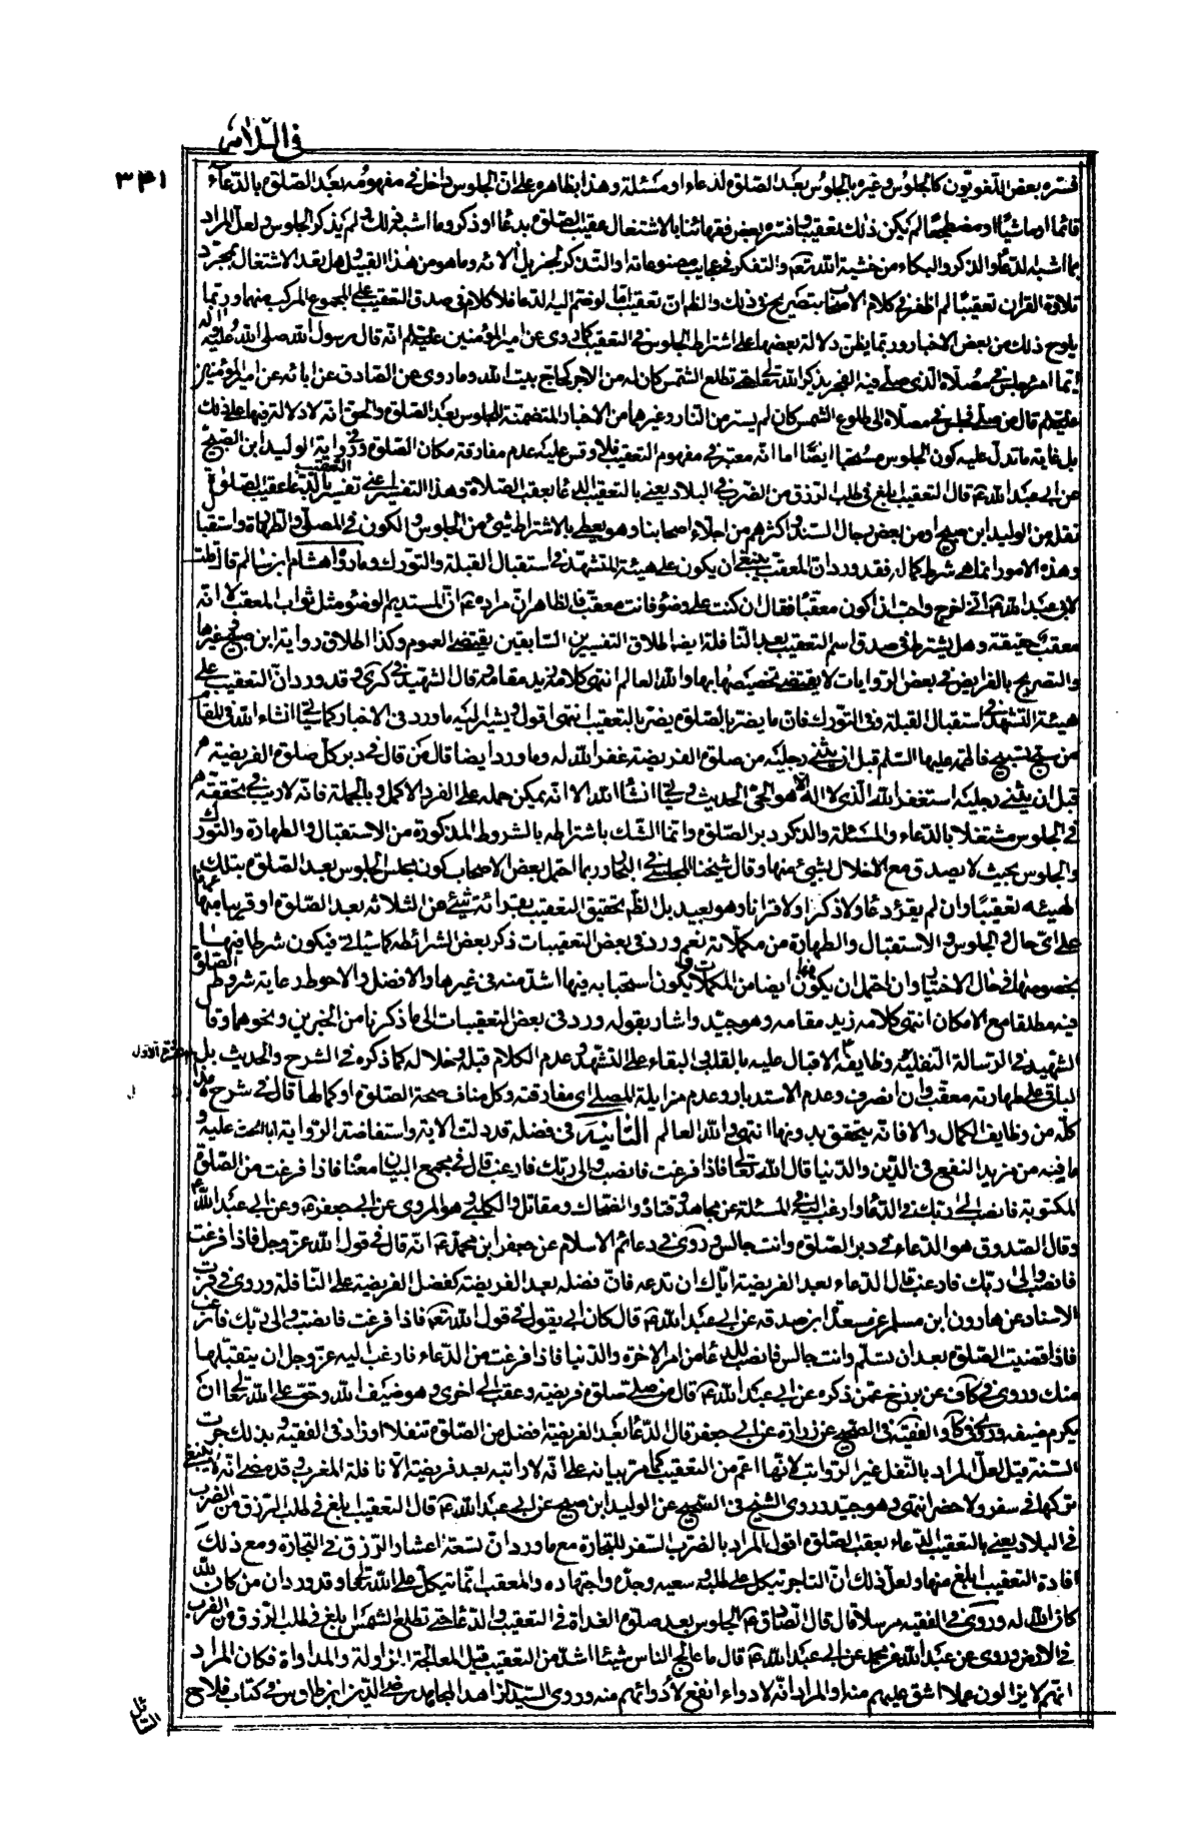 في السلام
٣٤١
فسّره بعض اللغويّون كالجلوس وغيره بالجلوس بعد الصّلوة لدعاء او مسئلة وهذا بظاهره على ان الجلوس داخل في مفهومه بعد الصّلوة بالدّعاء
قائما او ماشيًا او مضطجعًا لم يكن ذلك تعقيبًا وفسّره بعض فقهائنا بالاشتغال عقيب الصّلوة بدعاء او ذكر وما اشبه ذلك ولم يذكر الجلوس ولعل المراد
بما اشبه الدعاء والذكر والبكاء من خشية الله تعم والتفكر في عجايب مصنوعاته او التذكر لجزيل آلائه وما هو من هذا القبيل وهل يعدّ الاشتغال بمجرّد
تلاوة القران تعقيبًا لم اظفر في كلام الاصحاب بتصريح في ذلك والظ ان تعقيب اما لو ضمّ اليه الدعاء فلا كلام في صدق التعقيب على المجموع المركب منهما وربّما
يلوح ذلك من بعض الاخبار وربّما يظن دلالة بعضها على اشتراط الجلوس في التعقيب كما روى عن امير المؤمنين عليه السلم انّه قال رسول الله صلى الله عليه واله
ايّما امرء جلس في مصلّاه الّذي صلّى فيه الفجر يذكر الله تعالى حتى تطلع الشمس كان له من الاجر كحاج بيت الله وما روى عن الصّادق عن ابائه عن امير المؤمنين
عليه السلم قال من صلّى فجلس في مصلّاه الى طلوع الشمس كان له ستر من النار وغيرها من الاخبار المتضمنة للجلوس بعد الصّلوة والحق انّه لا دلالة فيها على ذلك
بل غاية ما تدل عليه كون الجلوس مستحبّا ايضًا اما انّه معتبر في مفهوم التعقيب فلا وقس عليه عدم مفارقة مكان الصّلوة وفي رواية الوليد ابن الصبيح
عن ابي عبد الله عم قال التعقيب ابلغ في طلب الرّزق من الضّرب في البلاد يعني بالتعقيب الدعاء بعقب الصّلاة وهذا التفسير اعني تفسير التعقيب بالدّعاء عقيب الصّلوة
نقل من الوليد ابن صبيح او من بعض رجال السند واكثرهم من اجلّاء اصحابنا وهو يعطي بالاشتراط شئ من الجلوس والكون في المصلى والطهارة واستقبال
وهذه الامور انما هي شرط كماله فقد ورد ان المعقب ينبغي ان يكون على هيئة المتشهّد في استقبال القبلة والتورّك وما رواه هشام ابن سالم قال قلت
لابي عبد الله عم انّي اخرج واحب ان اكون معقبًا فقال ان كنت على وضوء فانت معقب فالظاهر ان مراده عم ان المستديم الوضوء مثل ثواب المعقب لا انّه
معقب حقيقة وهل يشترط في صدق اسم التعقيب بعد النافلة ايضا اطلاق التفسيرين السّابقين يقتضي العموم وكذا اطلاق رواية ابن صبيح وغيرها
والتصريح بالفرايض في بعض الرّوايات لا يقتضي تخصيصها بها والله العالم انتهى كلامه زيد مقامه وقال الشهيد في كرى وقد ورد ان التعقيب على
هيئة التشهد في استقبال القبلة وفي التورّك فان ما يضر بالصّلوة يضرّ بالتعقيب انتهى اقول ويشير اليه ما ورد في الاخبار كما سياتي انشاء الله
من سبّح تسبيح فاطمة عليها السّلم قبل ان يثني رجليه من صلوة الفريضة غفر الله له وما ورد ايضا قال من قال في دبر كل صلوة الفريضة
قبل ان يثني رجليه استغفر الله الّذي لا اله الّا هو الحيّ الحديث وسياتي انشاء الله الا انّه يمكن حمله على الفرد الاكمل وبالجملة فانّه لا ريب في تحققه
في الجلوس مشتغلا بالدّعاء والمسئلة والذكر دبر الصّلوة وانّما الشّك باشتراطه بالشروط المذكورة من الاستقبال والطهارة والتورّك
والجلوس بحيث لا يصدق مع الاخلال لشئ منها وقال شيخنا المجلسي في البحار ربما احتمل بعض الاصحاب كون مجلس الجلوس بعد الصّلوة بتلك
الهيئة تعقيبًا وان لم يقرء دعاء ولا ذكرًا ولا قرانا وهو بعيد بل الظ تحقيق التعقيب بقرائة شئ من الثلاثه بعد الصّلوة او قريبا منها
على ايّ حال في الجلوس والاستقبال والطهارة من مكملاته نعم ورد في بعض التعقيبات ذكر بعض الشرائط كما سياتي فيكون شرطا فيها
بخصوصها في حال الاختيار وان احتمل ان يكون فيها ايضا من المكملات ويكون استحبابه فيها اشدّ منه في غيرها والافضل والاحوط رعاية شروط الصّلوة
فيه مطلقا مع الامكان انتهى كلامه زيد مقامه وهو جيّد واشار بقوله ورد في بعض التعقيبات الى ما ذكرنا من الخبرين ونحوهما وقال
الشهيد في الرّسالة النّفلية وظايفه الاقبال عليه بالقلب والبقاء على التشهّد وعدم الكلام قبله وخلاله كما ذكره في الشرح والحديث بل
الباقي على طهارته معقب وان انصرف وعدم الاستدبار وعدم مزايلة المصلّى اي مفارقته وكل مناف صحة الصّلوة او كمالها قال في شرح هذا
كلّه من وظايف الكمال والا فانّه يتحقق بدونها انتهى والله العالم الثانية في فضله قد دلت الاية واستفاضة الرّواية بالحث عليه و
ما فيه من مزيد النفع في الدّين والدّنيا قال الله تعالى فاذا فرغت فانصب والى ربّك فارغب قال في مجمع البيان معناه فاذا فرغت من الصّلوة
المكتوبة فانصب الى ربّك في الدّعاء وارغب اليه في المسئلة عن مجاهد وقتادة والضحاك ومقاتل والكلبي وهو المروي عن ابي جعفر عم وعن ابي عبد الله
وقال الصّدوق هو الدّعاء في دبر الصّلوة وانت جالس وروى في دعائم الاسلام عن جعفر ابن محمد عم انّه قال في قول الله عز وجل فاذا فرغت
فانصب والى ربّك فارغب قال الدّعاء بعد الفريضة ايّاك ان تدعه فانّ فضله بعد الفريضة كفضل الفريضة على النّافلة وروى في قرب
الاسناد عن هارون ابن مسلم عن مسعدة ابن صدقه عن ابي عبد الله عم قال كان ابي يقول في قول الله تعم فاذا فرغت فانصب والى ربّك فارغب
فاذا قضيت الصّلوة بعد ان تسلّم وانت جالس فانصب للدّعاء من امر الاخرة والدّنيا فاذا فرغت من الدّعاء فارغب اليه عز وجل ان يتقبّلها
منك وروى في كافى عن بزيع عمّن ذكره عن ابي عبد الله عم قال من صلّى صلوة فريضة وعقب الى اخرى فهو ضيف الله وحق على الله تعالى ان
يكرم ضيفه وروى في كا والفقيه في الصّحيح عن زرارة عن ابي جعفر قال الدّعاء بعد الفريضة افضل من الصّلوة تنفلا وزاد في الفقيه وبذلك جرت
السّنة قيل لعلّ المراد بالنّفل غير الرّواتب لانّها اعم من التعقيب كما مرّ بيانه على انّه لا راتبه بعد فريضة الّا نافلة المغرب وقد مضى انّه لا ينبغي
تركها في سفر ولا حضر انتهى وهو جيّد وروى الشيخ في الصّحيح عن الوليد ابن صبيح عن ابي عبد الله عم قال التعقيب ابلغ في طلب الرّزق من الضرب
في البلاد يعني بالتعقيب الدّعاء بعقب الصّلوة اقول المراد بالضرب السّفر للتجارة مع ما ورد ان تسعة اعشار الرّزق في التجارة ومع ذلك
افادة التعقيب ابلغ منها ولعل ذلك ان التاجر يتكل على طلبه و سعيه وجدّه واجتهاده والمعقب انّما يتكل على الله تعالى وقد ورد ان من كان لله
كان الله له وروى في الفقيه مرسلا قال قال الصّادق عم الجلوس بعد صلوة الغداة في التعقيب والدّعاء حتى تطلع الشمس ابلغ في طلب الرّزق من الضرب
في الارض وروى عن عبد الله بن محمد عن ابي عبد الله عم قال ما عالج الناس شيئا اشدّ من التعقيب قيل المعالجة المزاولة والمداواة فكان المراد
انهم لا يزالون عملا اشق عليهم منه او المراد انّه لا دواء انفع لادوائهم منه وروى السّيد الزاهد المجاهد رضي الدّين ابن طاوس في كتاب فلاح
السّائل